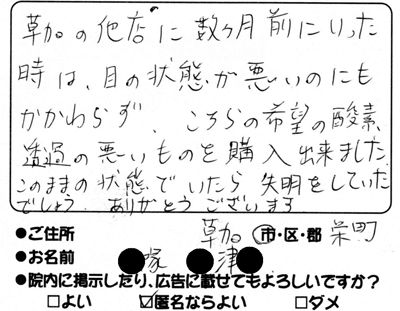 草加の他店に数ヶ月前にいった
時は、目の状態が悪いのにも
かかわらず、こちらの希望の酸素
透過の悪いものを購入出来ました
このままの状態でいたら失明をしていた
でしょう。ありがとうございます
●ご住所 草加 市・区・郡 栄町
●お名前 塚 津
●院内に掲示したり、広告に載せてもよろしいですか?
□よい ☑匿名ならよい □ダメ